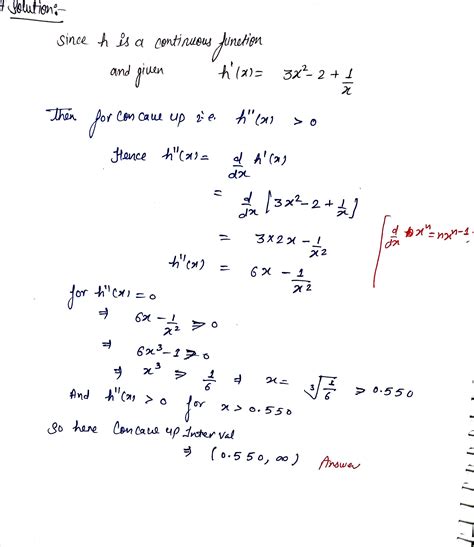 Solution:-
Since h is a continuous function
and given h'(x) = 3x² - 2 + 1/x
Then for concave up i.e. h''(x) > 0
Hence h''(x) = d/dx h'(x)
= d/dx [3x² - 2 + 1/x]
= 3×2x - 1/x²
d/dx xⁿ = nxⁿ⁻¹
h''(x) = 6x - 1/x²
for h''(x) = 0
⇒ 6x - 1/x² ⩾ 0
⇒ 6x³ - 1 ⩾ 0
⇒ x³ ⩾ 1/6 ⇒ x = ∛(1/6) ⩾ 0.550
And h''(x) > 0 for x > 0.550
So here Concave up Interval
⇒ (0.550, ∞) Answer